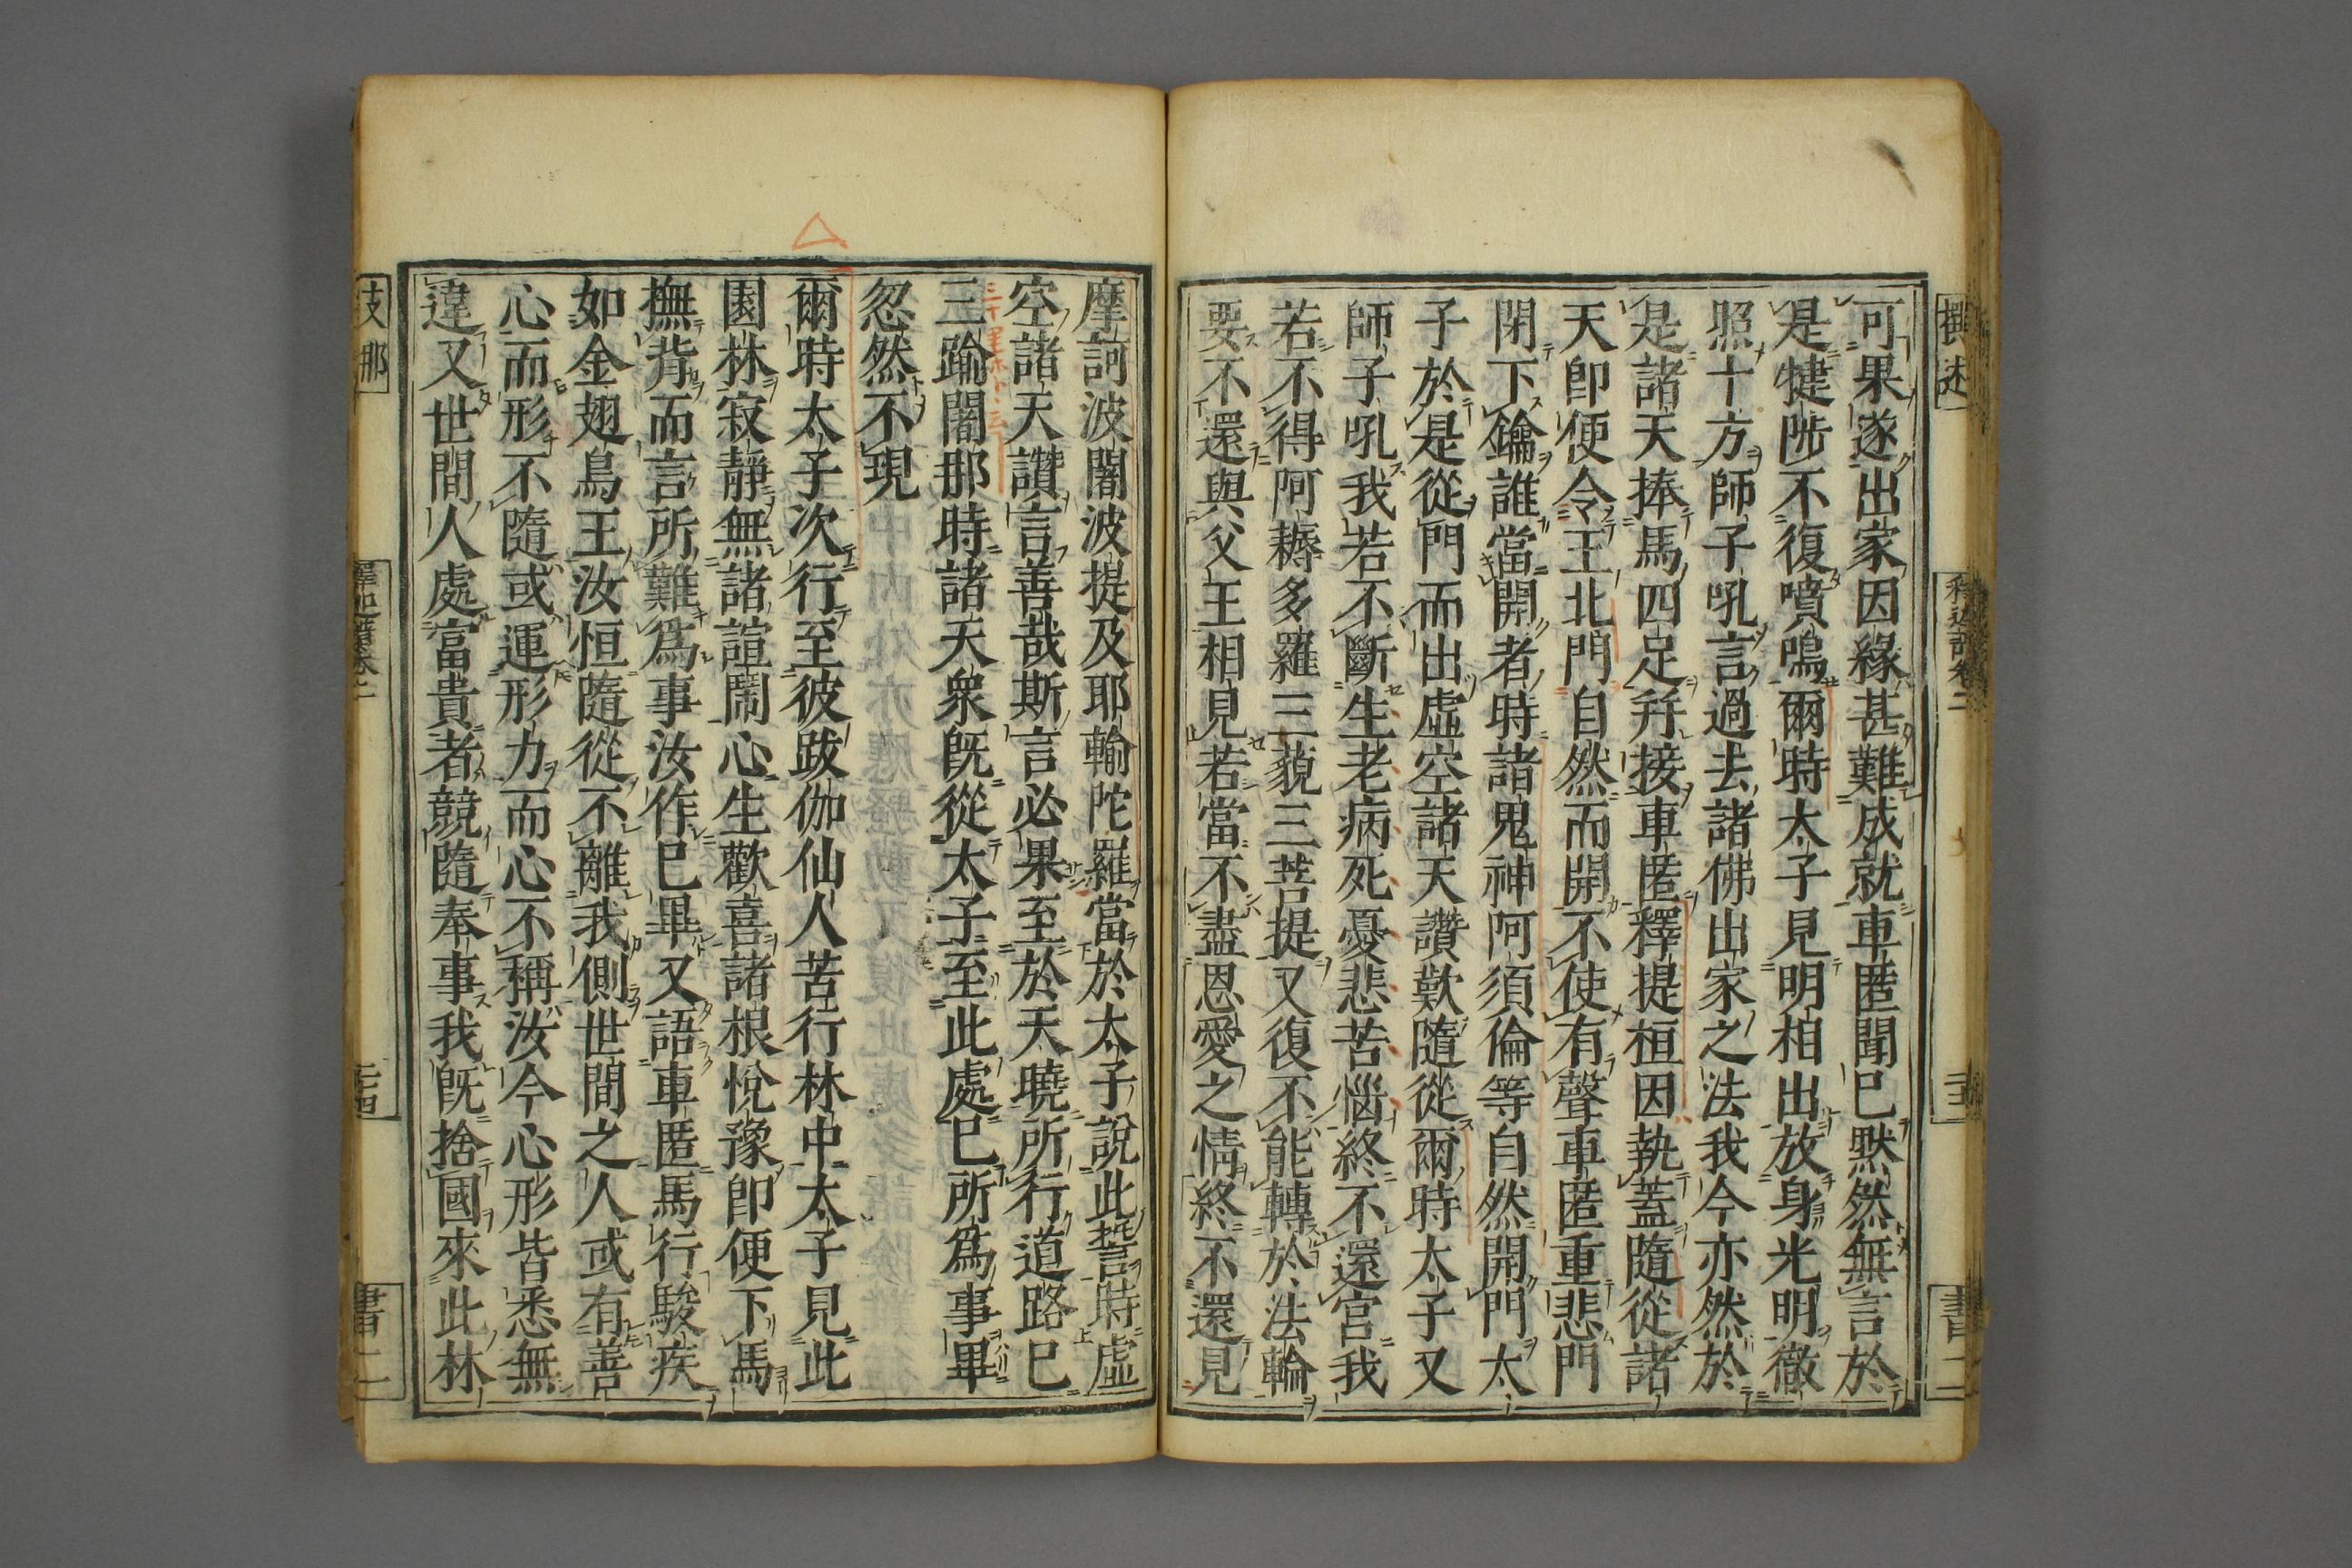 可果遂出家因緣甚難成就車匿聞已默然無言於
是犍陟不復噴鳴爾時太子見明相出放身光明徹
照十方師子吼言過去諸佛出家之法我今亦然於
是諸天捧馬四足幷接車匿釋提桓因執蓋隨從諸
天卽便令王北門自然而開不使有聲車匿重悲門
閉下鑰誰當開者時諸鬼神阿須倫等自然開門太
子於是從門而出虛空諸天讚歎隨從爾時太子又
師子吼我若不斷生老病死憂悲苦惱終不還宮我
若不得阿耨多羅三藐三菩提又復不能轉於法輪
要不還與父王相見若當不盡恩愛之情終不還見
摩訶波闍波提及耶輸陀羅當於太子說此誓時虛
空諸天讚言善哉斯言必果至於天曉所行道路已
三踰闍那時諸天衆旣從太子至此處已所爲事畢
忽然不現
爾時太子次行至彼跋伽仙人苦行林中太子見此
園林寂靜無諸諠鬧心生歡喜諸根悅豫卽便下馬
撫背而言所難爲事汝作已畢又語車匿馬行駿疾
如金翅鳥王汝恒隨從不離我側世間之人或有善
心而形不隨或運形力而心不稱汝今心形皆悉無
違又世間人處富貴者競隨奉事我旣捨國來此林